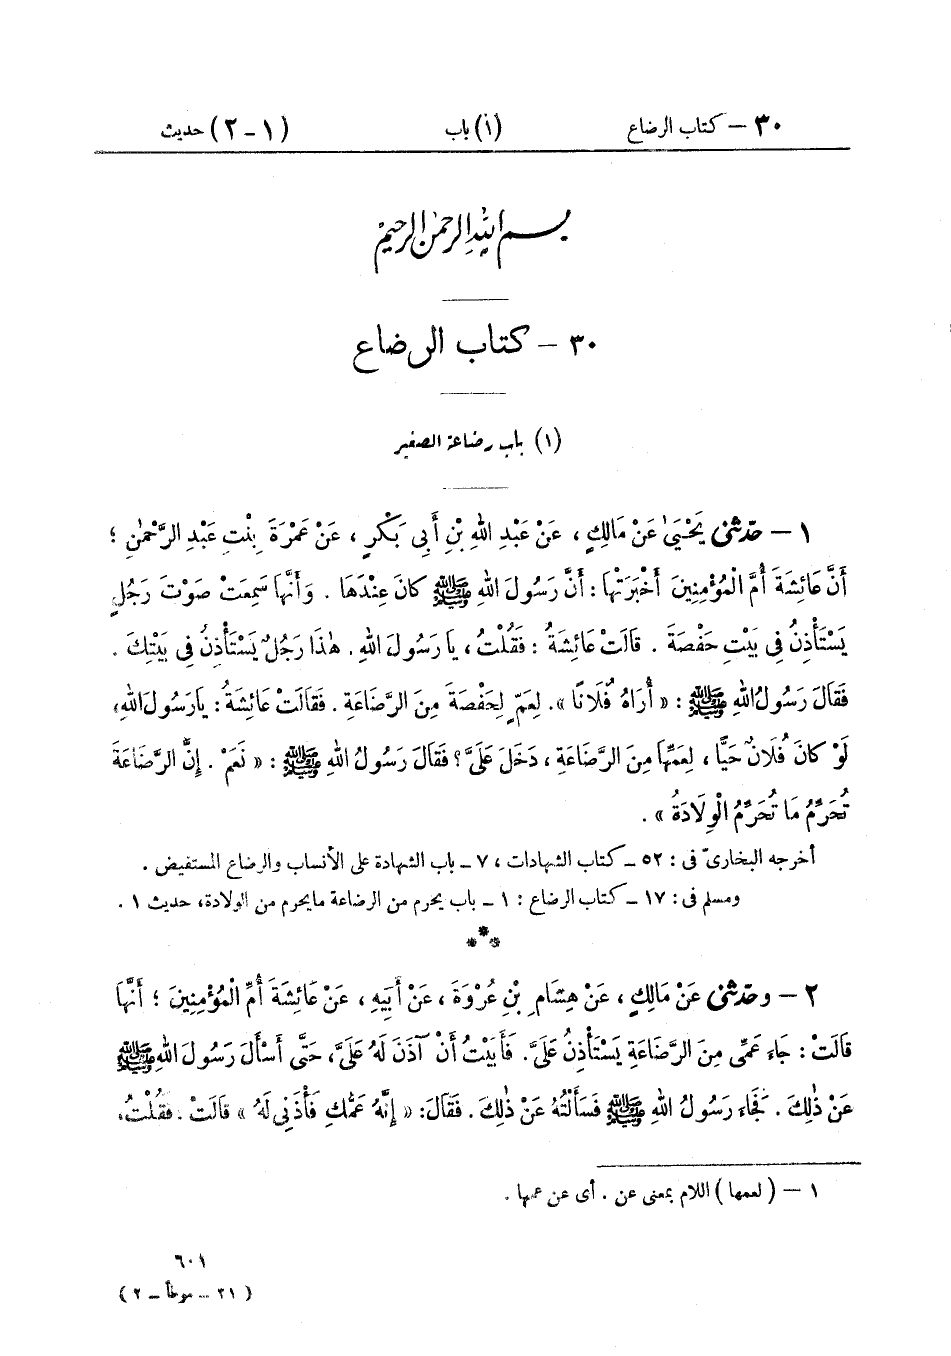 ٣٠ – كتاب الرضاع (١) باب (١ – ٢) حديث
بسم الله الرحمن الرحيم
٣٠ – كتاب الرضاع
(١) باب رضاعة الصغير
١ – حَدَّثَنِي يَحْيَىٰ عَنْ مَالِكٍ ، عَنْ عَبْدِ اللهِ بْنِ أَبِي بَكْرٍ ، عَنْ عَمْرَةَ بِنْتِ عَبْدِ الرَّحْمٰنِ ؛
أَنَّ عَائِشَةَ أُمَّ الْمُؤْمِنِينَ أَخْبَرَتْهَا : أَنَّ رَسُولَ اللهِ ﷺ كَانَ عِنْدَهَا . وَأَنَّهَا سَمِعَتْ صَوْتَ رَجُلٍ
يَسْتَأْذِنُ فِى بَيْتِ حَفْصَةَ . قَالَتْ عَائِشَةُ : فَقُلْتُ ، يَا رَسُولَ اللهِ . هٰذَا رَجُلٌ يَسْتَأْذِنُ فِى بَيْتِكَ .
فَقَالَ رَسُولُ اللهِ ﷺ : « أُرَاهُ فُلَانًا ». لِعَمٍّ لِحَفْصَةَ مِنَ الرَّضَاعَةِ . فَقَالَتْ عَائِشَةُ : يَارَسُولَ اللهِ ،
لَوْ كَانَ فُلَانٌ حَيًّا ، لِعَمِّهَا مِنَ الرَّضَاعَةِ ، دَخَلَ عَلَىَّ ؟ فَقَالَ رَسُولُ اللهِ ﷺ : « نَعَمْ . إِنَّ الرَّضَاعَةَ
تُحَرِّمُ مَا تُحَرِّمُ الْوِلَادَةُ » .
أخرجه البخارىّ فى : ٥٢ ـ كتاب الشهادات ، ٧ ـ باب الشهادة على الأنساب والرضاع المستفيض .
ومسلم فى : ١٧ ـ كتاب الرضاع : ١ ـ باب يحرم من الرضاعة مايحرم من الولادة، حديث ١ .
***
٢ – وحَدَّثَنِي عَنْ مَالِكٍ ، عَنْ هِشَامِ بْنِ عُرْوَةَ ، عَنْ أَبِيهِ ، عَنْ عَائِشَةَ أُمِّ الْمُؤْمِنِينَ ؛ أَنَّهَا
قَالَتْ : جَاءَ عَمِّى مِنَ الرَّضَاعَةِ يَسْتَأْذِنُ عَلَىَّ. فَأَبَيْتُ أَنْ آذَنَ لَهُ عَلَىَّ، حَتَّى أَسْأَلَ رَسُولَ اللهِ ﷺ
عَنْ ذٰلِكَ . فَجَاءَ رَسُولُ اللهِ ﷺ فَسَأَلْتُهُ عَنْ ذٰلِكَ . فَقَالَ: « إِنَّهُ عَمُّكِ فَأْذَنِى لَهُ » قَالَتْ . فَقُلْتُ،
١ – ( لعمها ) اللام بمعنى عن . أى عن عمها .
٦٠١
( ٢١ – موطأ – ٢ )